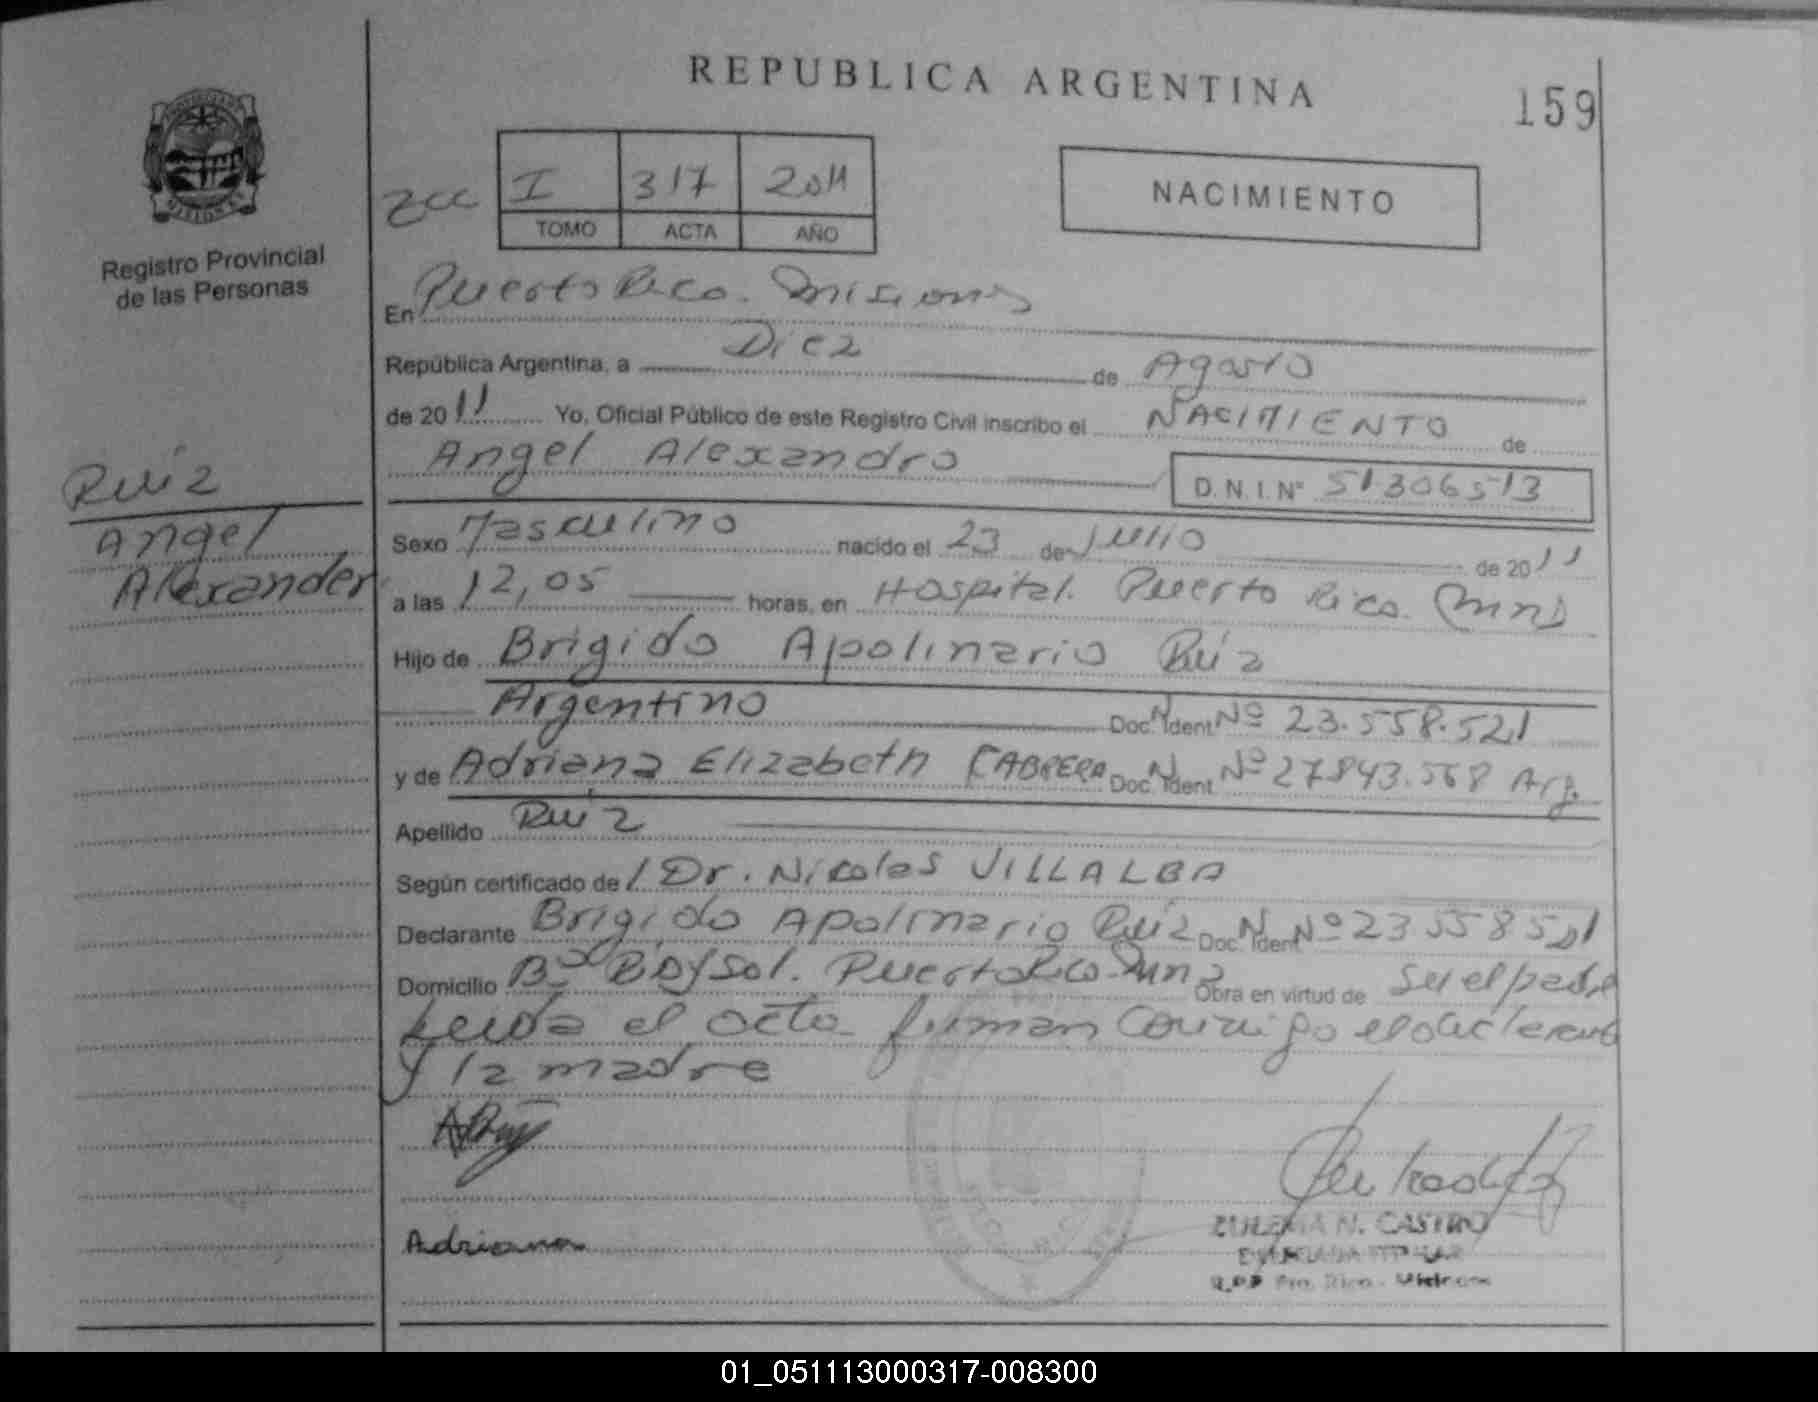 REPUBLICA ARGENTINA
159
Registro Provincial
de las Personas
zcc I 317 2011
TOMO ACTA AÑO
NACIMIENTO
En Puerto Rico. Misiones
República Argentina, a Diez de Agosto
de 2011 Yo, Oficial Público de este Registro Civil inscribo el NACIMIENTO de
Angel Alexandro D.N.I. Nº 51306513
Ruiz
Angel
Alexander
Sexo Masculino nacido el 23 de Julio de 2011
a las 12,05 horas, en Hospital. Puerto Rico. (Mns)
Hijo de Brigido Apolinario Ruiz
Argentino Doc. N. Ident Nº 23.558.521
y de Adriana Elizabeth CABRERA Doc. N. Ident Nº 27843.568 Arg.
Apellido Ruiz
Según certificado de / Dr. Nicolas VILLALBA
Declarante Brigido Apolinario Ruiz Doc. N. Ident Nº 23558521
Domicilio Bº Puerto Rico Mns Obra en virtud de Ser el padre
Leida el acta firman conmigo el declarante
y la madre
Adriana
N. CASTRO
01_051113000317-008300